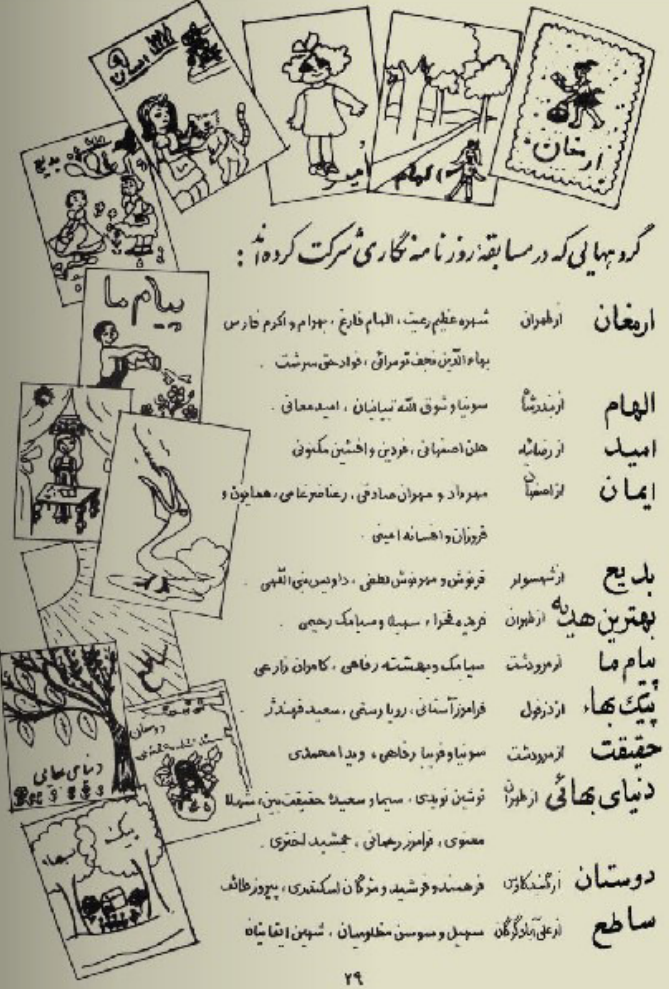 ایمان
امید
الهام
ارمغان
بدیع
پیام ما
ساطع
دنیای بهائی
دوستان
پیک بهاء
گروههایی که در مسابقهٔ روزنامه نگاری شرکت کرده‌اند :
ارمغان از طهران شهره عظیم رعیت ، الهام فارغ ، بهرام و اکرم فارس
بهاءالدین نجف تومرائی ، فواد حق سرشت .
الهام سونیا و شوق الله تبیانیان ، امید معانی .
امید از رضائیه هلن اصفهانی ، فردین و افشین مکنونی
ایمان از اصفهان مهرداد و مهران صادقی ، رعنا ضرغامی ، همایون و
فروزان و افسانه امینی .
بدیع از شهسوار فرنوش و مهرنوش لطفی ، داویس نبی الهی .
بهترین هدیه از طهران فریده فخرا ، سهیلا و سیامک رحیمی .
پیام ما از مرودشت سیامک و بهشته رفاهی ، کامران زارعی
پیک بهاء از دزفول فرامرز آستانی ، رویا رستمی ، سعید قهندژ
حقیقت از مرودشت سونیا و فریبا رفاهی ، ویدا محمدی
دنیای بهائی از طهران نوشین نویدی ، سیما و سعیده حقیقت بین ، سهیلا
معنوی ، فرامرز رحمانی ، جمشید اختری .
دوستان از گنبد کاوس فرهمند و فرشید و مژگان اسکندری ، پیروز طائف
ساطع از علی آباد گرگان سهیل و سوسن مظلومیان ، شهین ایقانیان
۲۹